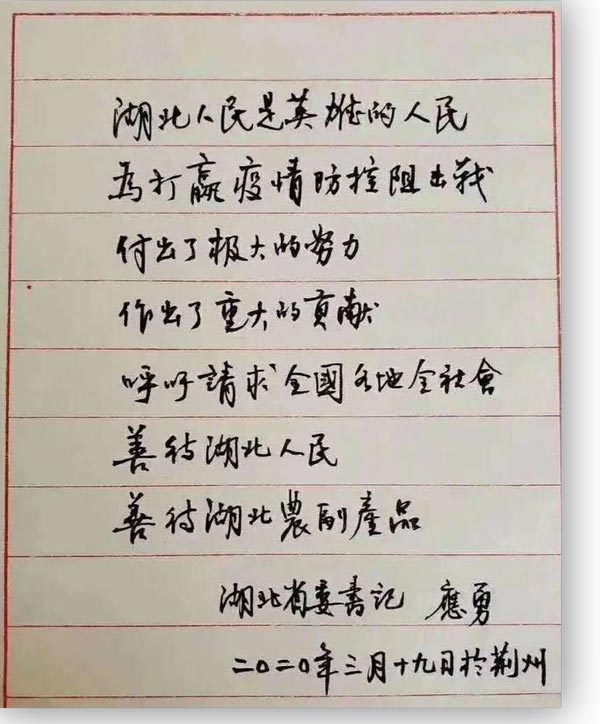 湖北人民是英雄的人民
為打贏疫情防控阻击戰
付出了极大的努力
作出了重大的貢献
呼吁請求全國各地全社會
善待湖北人民
善待湖北農副產品
湖北省委書記 應勇
二〇二〇年三月十九日於荆州